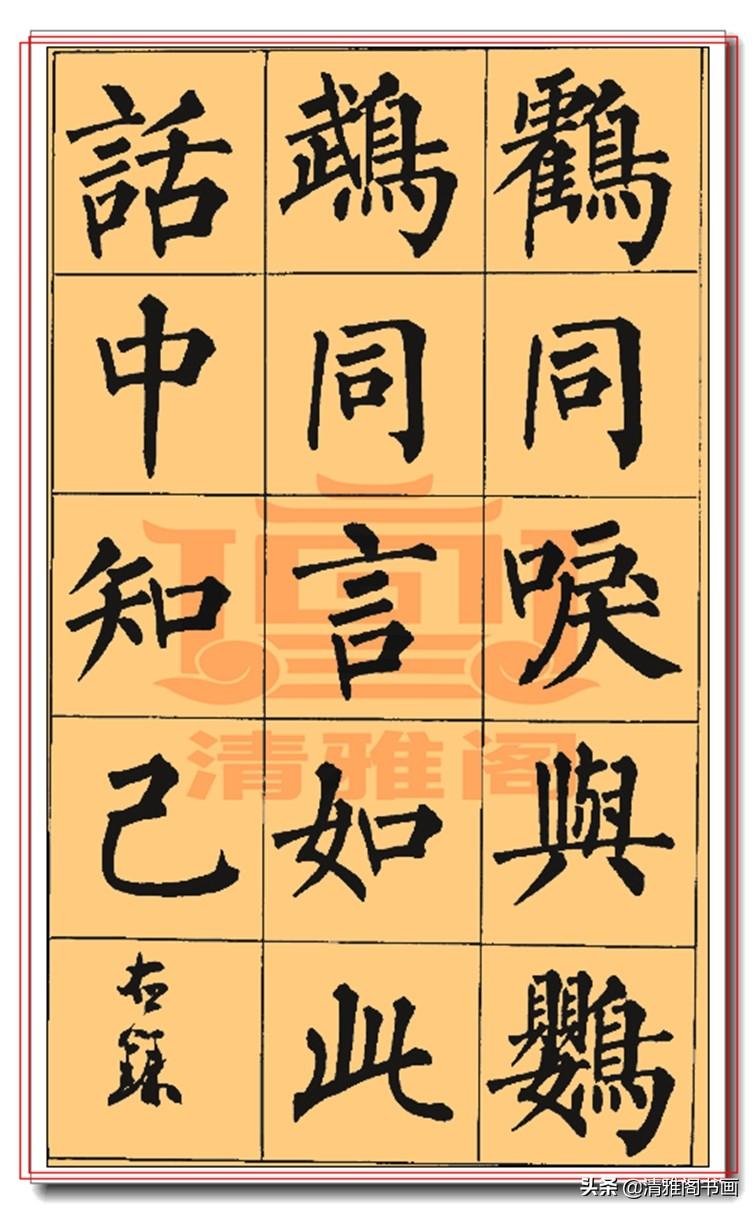 鸖同唳與鸚
鵡同言如此
話中知己
右錄
清雅阁
头条 @清雅阁书画